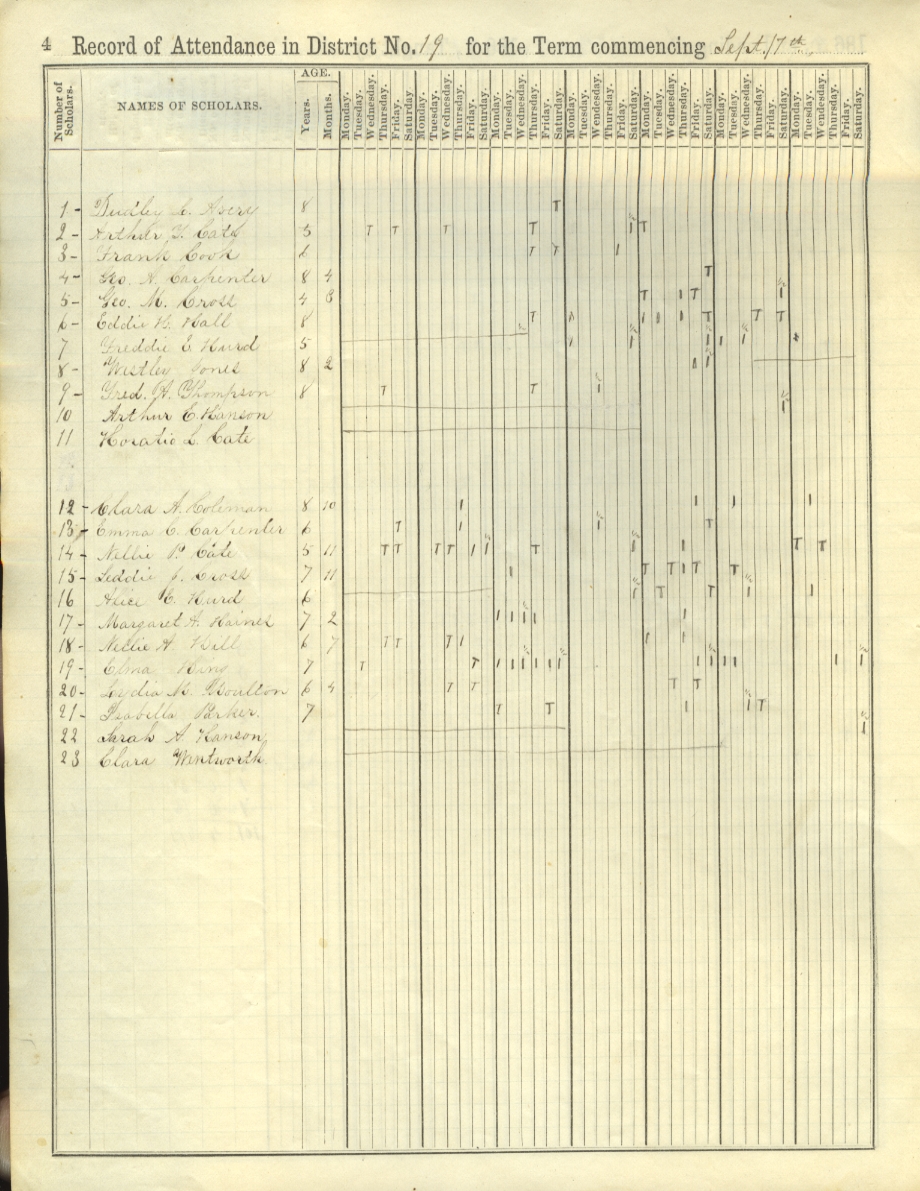 4 Record of Attendance in District No. 19 for the Term commencing Sept. 7th
Number of Scholars. NAMES OF SCHOLARS. AGE. Years. Months. Monday. Tuesday. Wednesday. Thursday. Friday. Saturday Monday. Tuesday. Wednesday. Thursday. Friday. Saturday. Monday. Tuesday. Wednesday. Thursday. Friday. Saturday. Monday. Tuesday. Wednesday. Thursday. Friday. Saturday. Monday. Tuesday. Wednesday. Thursday. Friday. Saturday. Monday. Tuesday. Wednesday. Thursday. Friday. Saturday. Monday. Tuesday. Wednesday. Thursday. Friday. Saturday.
1 - Dudley L. Avery 8 T
2 - Arthur Y. Cate 5 T T T T T
3 - Frank Cook 6 T T
4 - Geo. N. Carpenter 8 4 T
5 - Geo. M. Cross 4 8 T T
6 - Eddie H. Hall 8 T T T T
7 Freddie E Hurd 5
8 - Westley Jones 8 2
9 - Fred. H. Thompson 8 T T
10 Arthur E. Hanson
11 Horatio L. Cate
12 - Clara A. Coleman 8 10
13 - Emma C. Carpenter 6 T T
14 - Nellie P. Cate 5 11 T T T T T T T
15 - Leddie J. Cross 7 11 T T T T
16 Alice C. Hurd 6 T T
17 - Margaret A. Haines 7 2
18 - Nellie A. Hill 6 7 T T T
19 - Elma King 7 T T T
20 - Lydia M. Moulton 6 4 T T T T
21 - Isabella Parker. 7 T T
22 Sarah A. Hanson
23 Clara Wentworth